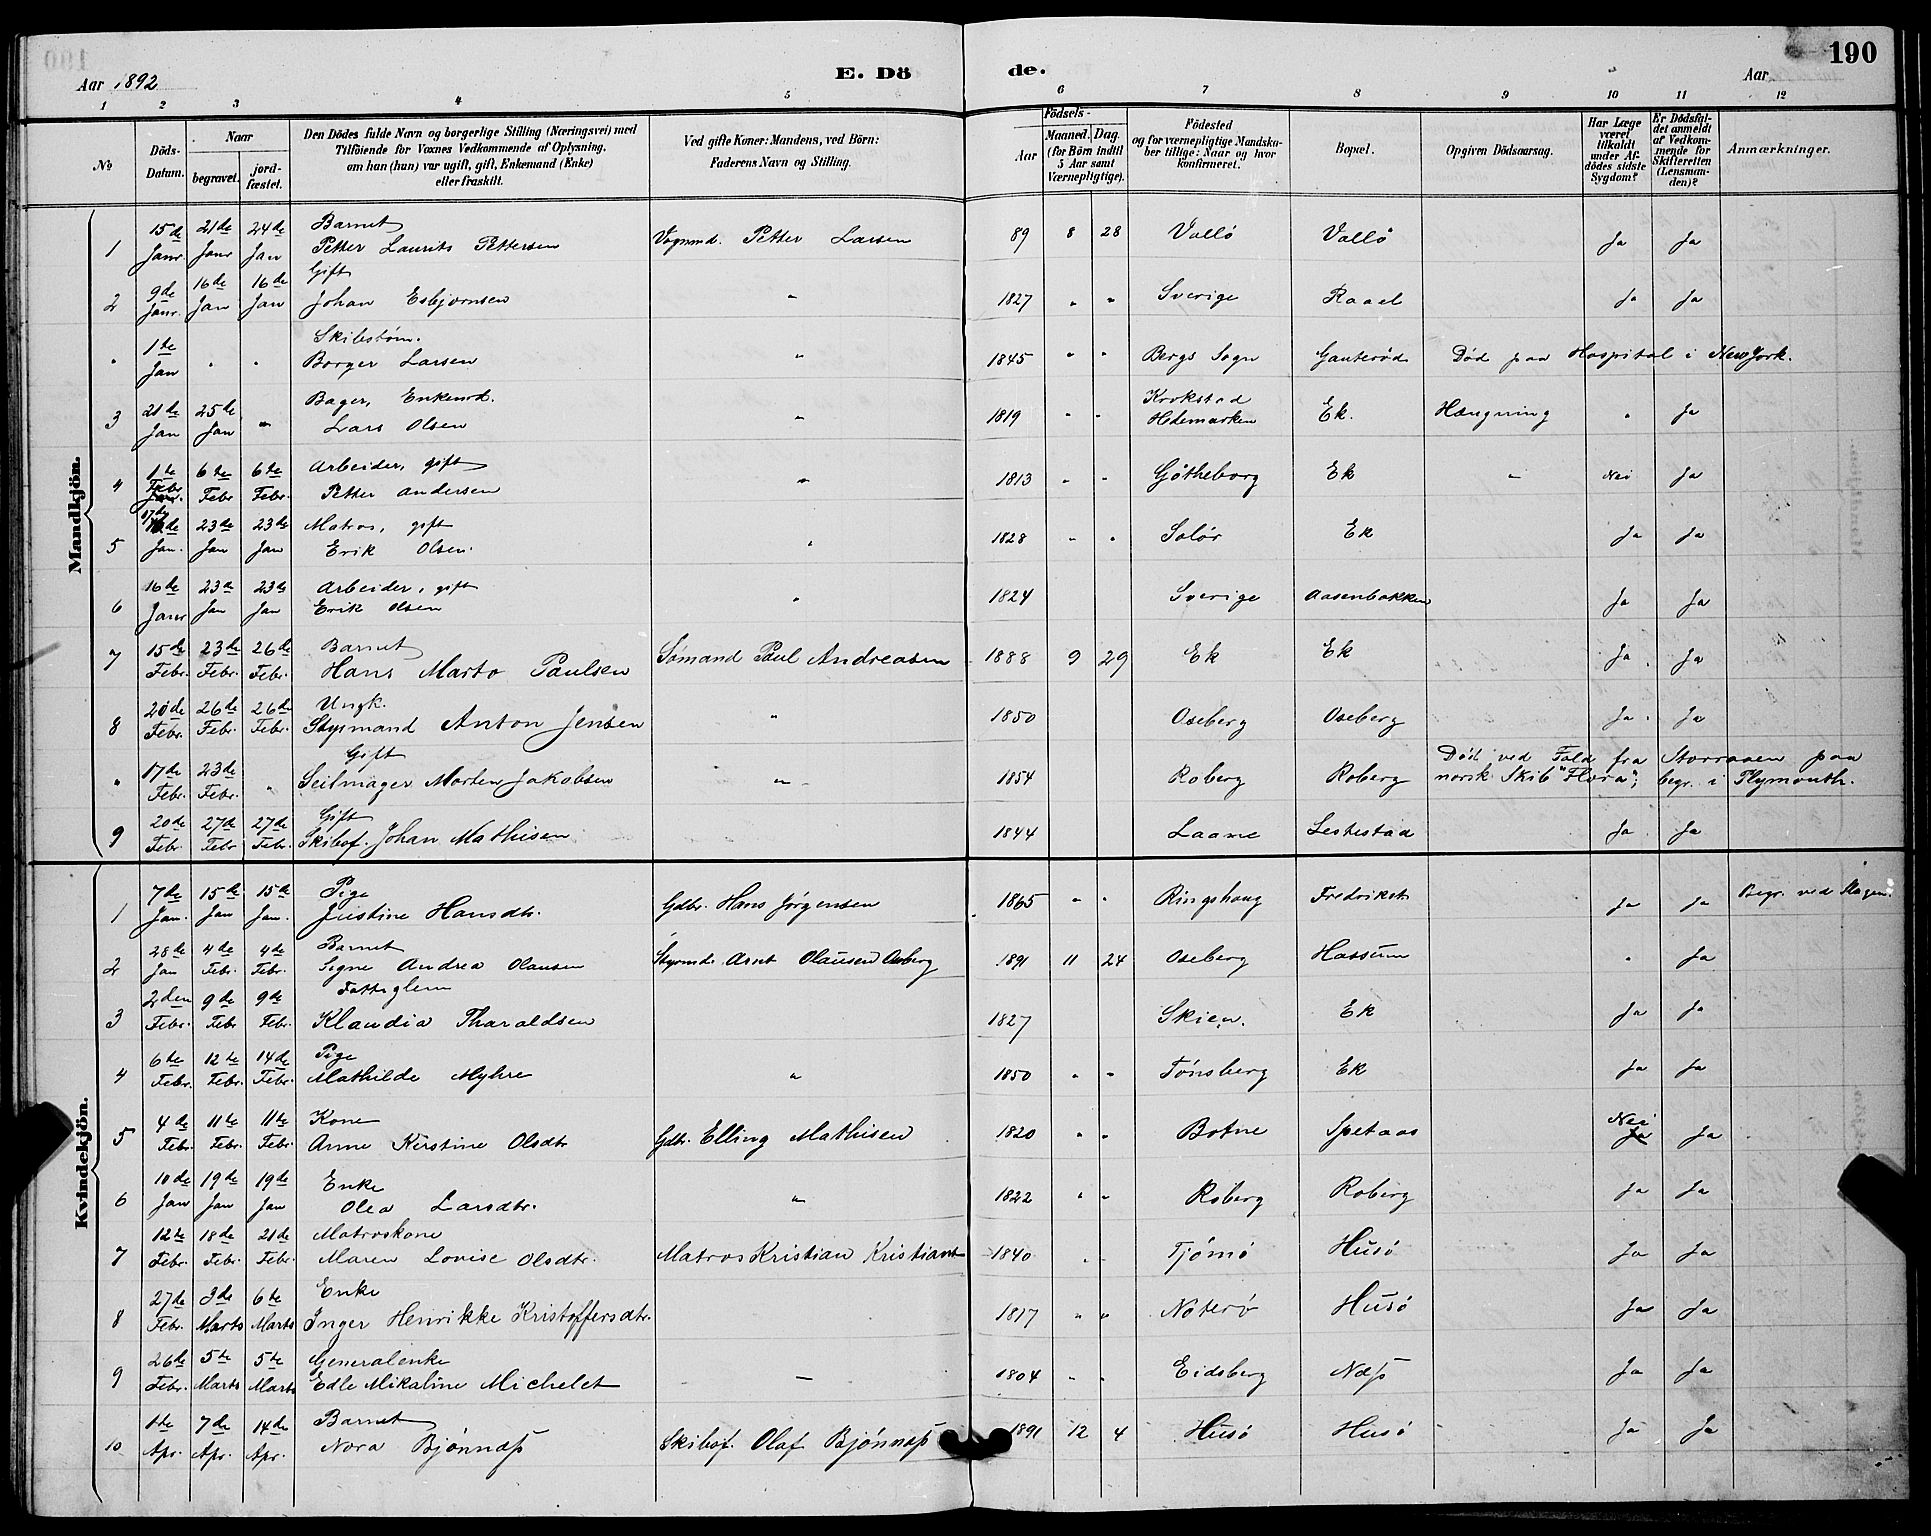 190
Aar 1892 E. Dö de. Aar
1 2 3 4 5 6 7 8 9 10 11 12
№
Döds-Datum.
Naar
begravet.
jord-fæstet.
Den Dödes fulde Navn og borgerlige Stilling (Næringsvei) med
Tilföiende for Voxnes Vedkommende af Oplysning,
om han (hun) var ugift, gift, Enkemand (Enke)
eller fraskilt.
Ved gifte Koner: Mandens, ved Börn:
Faderens Navn og Stilling.
Födsels-
Aar
Maaned. Dag.
(for Börn indtil
5 Aar samt
Værnepligtige).
Födested
og for værnepligtige Mandska-
ber tillige: Naar og hvor
konfirmeret.
Bopæl.
Opgiven Dödsaarsag.
Har Læge
været
tilkaldt
under Af-
dödes sidste
Sygdom?
Er Dödsfal-
det anmeldt
af Vedkom-
mende for
Skifteretten
(Lensman-
den)?
Anmærkninger.
Mandkjön.
15de 21de 24de Barnet
1 Janr. Janr Jan Petter Laurits Pettersen Vognmd. Petter Larsen 89 8 28 Vallö Vallö Ja Ja
9de 16de 16de Gift
2 Janr. Jan Jan Johan Esbjørnsen " 1827 " " Sverige Raael Ja Ja
1te Skibstøm.
" Jan " " Borger Larsen " 1845 " " Bergs Sogn Gauterød Død paa Hospital i New York.
21de 25de Bager, Enkemd. Krokstad
3 Jan Jan " Lars Olsen " 1819 " " Hedemarken Ek. Hængning " Ja
1te 6te 6te Arbeider, gift
4 Febr. Janr. Febr Febr. Petter Andersen " 1813 " " Gøtheborg Ek " Nei Ja
17de 23de 23de Matros, gift
5 Jan. Jan Jan Erik Olsen. " 1828 " " Solør Ek Ja Ja
16de 23de 23de Arbeider, gift
6 Janr Jan Jan Erik Olsen " 1824 Sverige Aasenbakken Ja Ja
15de 23de 26de Barnet
7 Febr. Febr. Febr. Hans Marto Paulsen Sømand Paul Andreasen 1888 9 29 Ek Ek Ja Ja
20de 26de 26de Ungk.
8 Febr. Febr. Febr. Styrmand Anton Jensen " 1850 Oseberg Oseberg Ja Ja
17de 23de Gift Død ved Fald fra Storraaen paa
" Febr. Febr. " Seilmager Morten Jakobsen " 1854 Roberg Roberg norsk Skib "Flora"; begr. i Plymouth.
20de 27de 27de Gift
9 Febr. Febr Febr. Skibsf. Johan Mathisen 1844 Laane Lestestad Ja Ja
Kvindekjön.
7de 15de 15de Pige
1 Jan. Jan Jan. Justine Hansdtr. Gdbr. Hans Jørgensen 1865 " " Ringshaug Fredrikst. Ja Ja Begr. ved Slagen.
28de 4de 4de Barnet
2 Jan Febr. Febr. Signe Andrea Olausen Styrmd. Arnt Olausen Oseberg 1891 11 24 Oseberg Hassum " Ja
2den 9de 9de Fattiglem
3 Febr. Febr Febr. Klaudia Tharaldsen 1827 Skien. Ek Ja Ja
6te 12te 14de Pige
4 Febr. Febr. Febr. Mathilde Myhre " 1850 " " Tønsberg Ek Ja Ja
4de 11te 11te Kone Nei
5 Febr. Febr. Febr. Anne Kirstine Olsdtr Gdbr. Elling Mathisen 1820 " " Botne Spetaas Ja Ja
10de 19de 19de Enke
6 Jan Jan Jan Olea Larsdtr. " 1822 " " Roberg Roberg Ja Ja
12te 18de 21de Matroskone
7 Febr. Febr. Febr. Maren Lovise Olsdtr. Matros Kristian Kristians 1840 " Tjømø Husö Ja Ja
27de 3de 6te Enke
8 Febr. Marts Marts Inger Henrikke Kristoffersdtr. 1817 " " Nøterø Husö Ja Ja
26de 5te 5te Generalenke
9 Febr. Marts Marts Edle Mikaline Michelet — 1804 " " Eidsberg Næss Ja Ja
1te 7de 14de Barnet
10 Apr. Apr. Apr. Nora Bjønnæss Skibsf. Olaf Bjønnæss 1891 12 4 Husö Husö Ja Ja